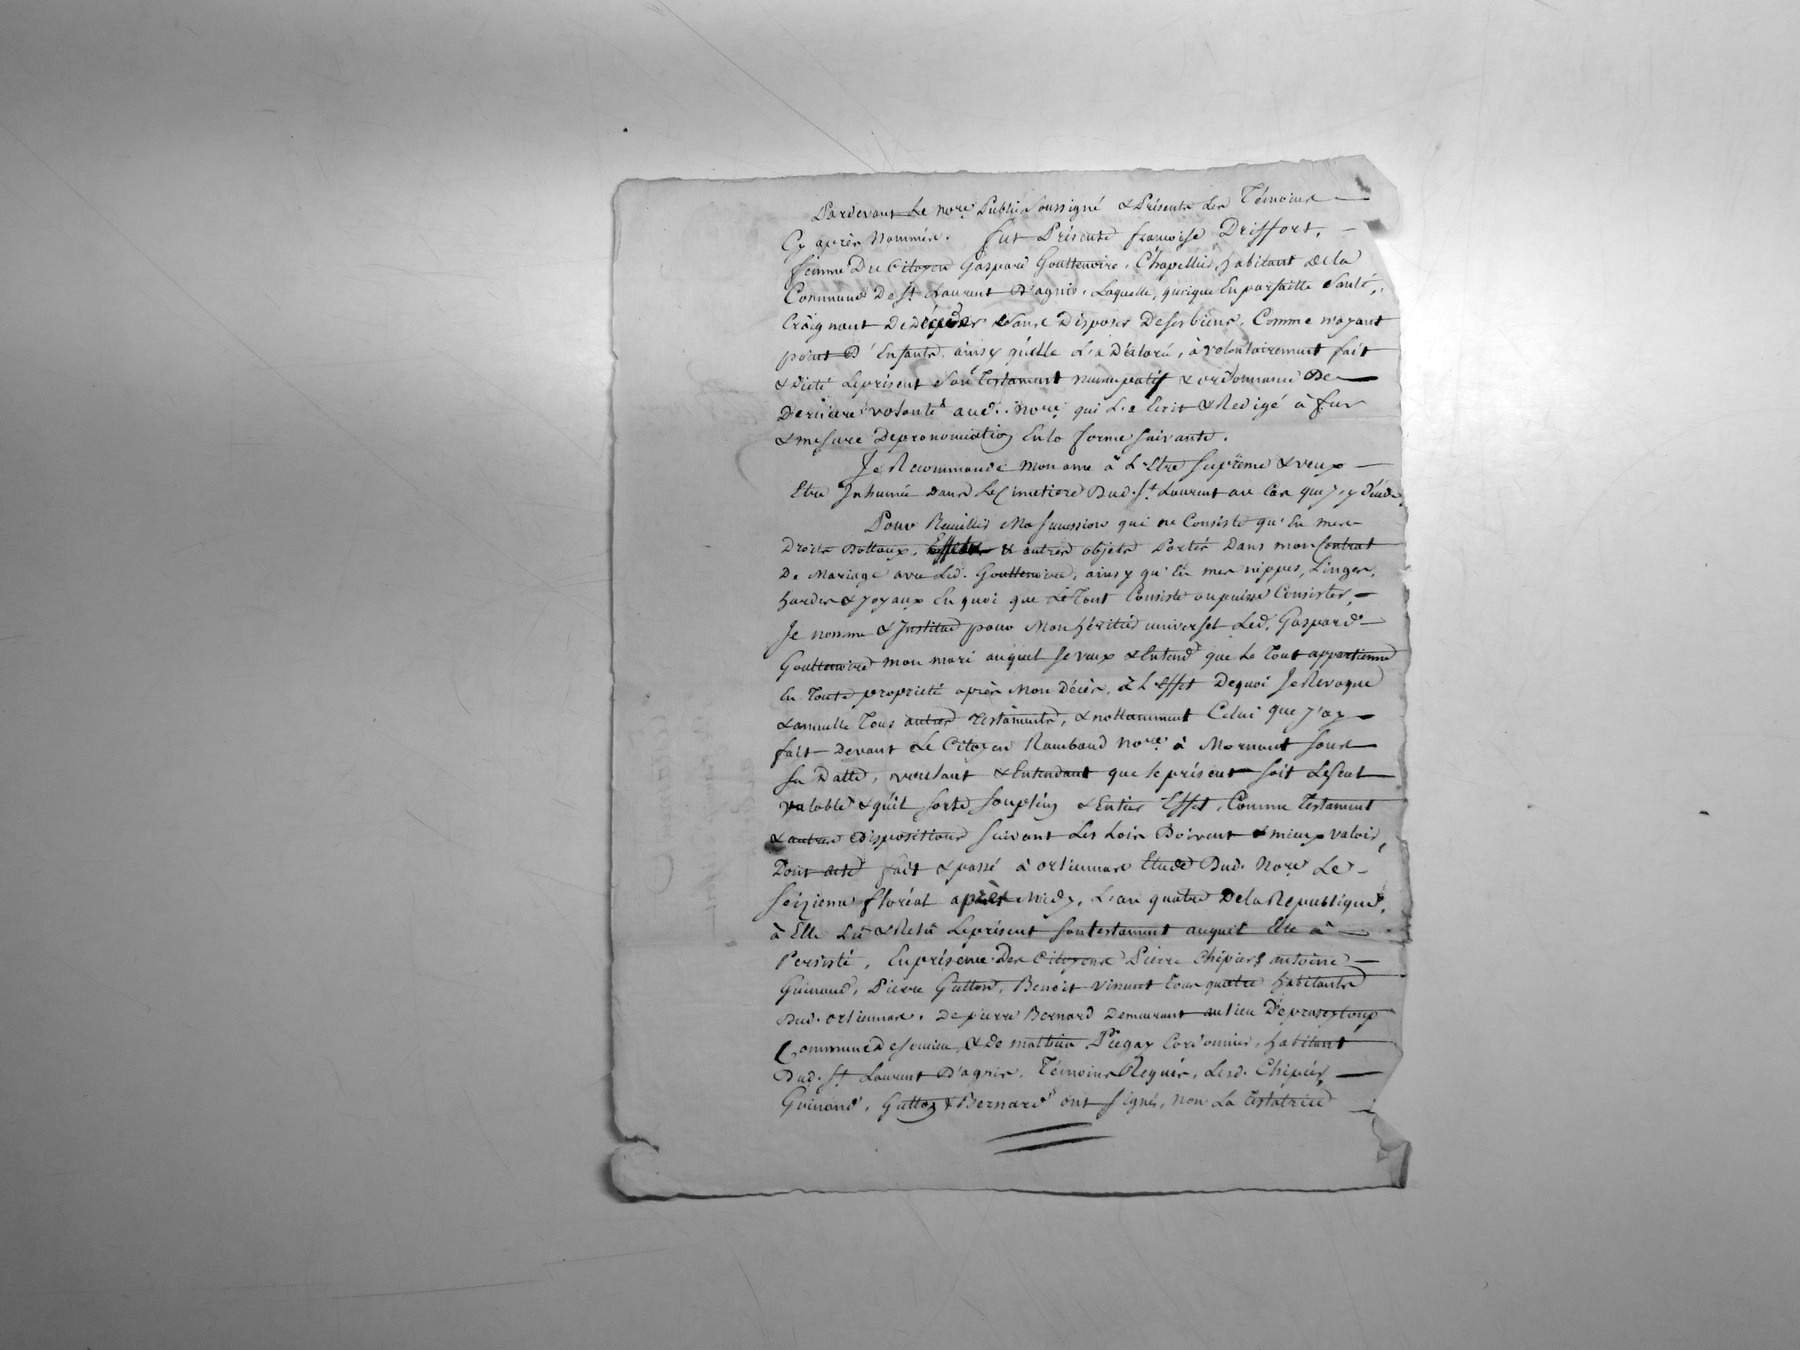 Pardevant Le nore. Public Soussigné & Présents Les Témoins
Cy après Nommés. fut Présente françoise Driffort,
femme Du Citoyen Gaspard Gouttenoire, Chapellier, habitant de la
Commune De St. Laurent D'agnis. Laquelle, quoique En parfaitte Santé,
Craignant De Décéder Sans Disposer De ses biens, Comme n'ayant
point D'Enfants, ainsy qu'elle L'a Déclaré, à volontairement fait
& dicté le présent Son Testament nuncupatif & ordonnance De
Dernière volonté aud. nore. qui L'a Ecrit & Redigé à fur
& mesure De prononciation En la forme suivante.
Je Recommande mon ame à L'Etre Suprême & veux
Etre Inhumée dans Le Cimetiere Dud. St. Laurent au Cas que j'y décède
Pour Recueillir Ma Succession qui ne Consiste qu'En mes
Droits Dottaux, Effets & autres objets Portés Dans mon Contrat
De Mariage avec Led. Gouttenoire, ainsy qu'En mes nippes, Linges,
hardes & joyaux En quoi que Le Tout Consiste ou puisse Consister,
Je nomme & Institue pour Mon héritier universel Led. Gaspard
Gouttenoire mon mari auquel Je veux & Entend que Le Tout appartienne
En Toute propriété après Mon Décès, à L'Effet De quoi Je Revoque
& annulle Tous autres Testaments, & nottamment Celui que j'ay
fait Devant Le Citoyen Rambaud nore. à Mornant Sous
Sa Datte, voulant & Entendant que le présent soit Le Seul
valable & qu'il sorte son plein & Entier Effet, Comme Testament
& autres Dispositions suivant Les Loix Doivent & mieux valoir,
Dont acte fait & passé à orliennas Etude Dud. Nore. Le
Seizieme floréal après Midy, L'an quatre De la Republique,
à Elle Lû & Relû Le présent Son testament auquel Elle à
Persisté, En présence Des Citoyens Pierre Chipier, antoine
Guinand, Pierre Gutton, Benoit Vincent Tous quatre habitants
Dud. orliennas, De pierre Bernard Demeurant au lieu De
Commune De Soucieu, & De mathieu Piegay Cordonnier, habitant
Dud. St. Laurent D'agnis, Témoins Requis, Lesd. Chipier,
Guinand, Gutton & Bernard ont Signés, non La Testatrice